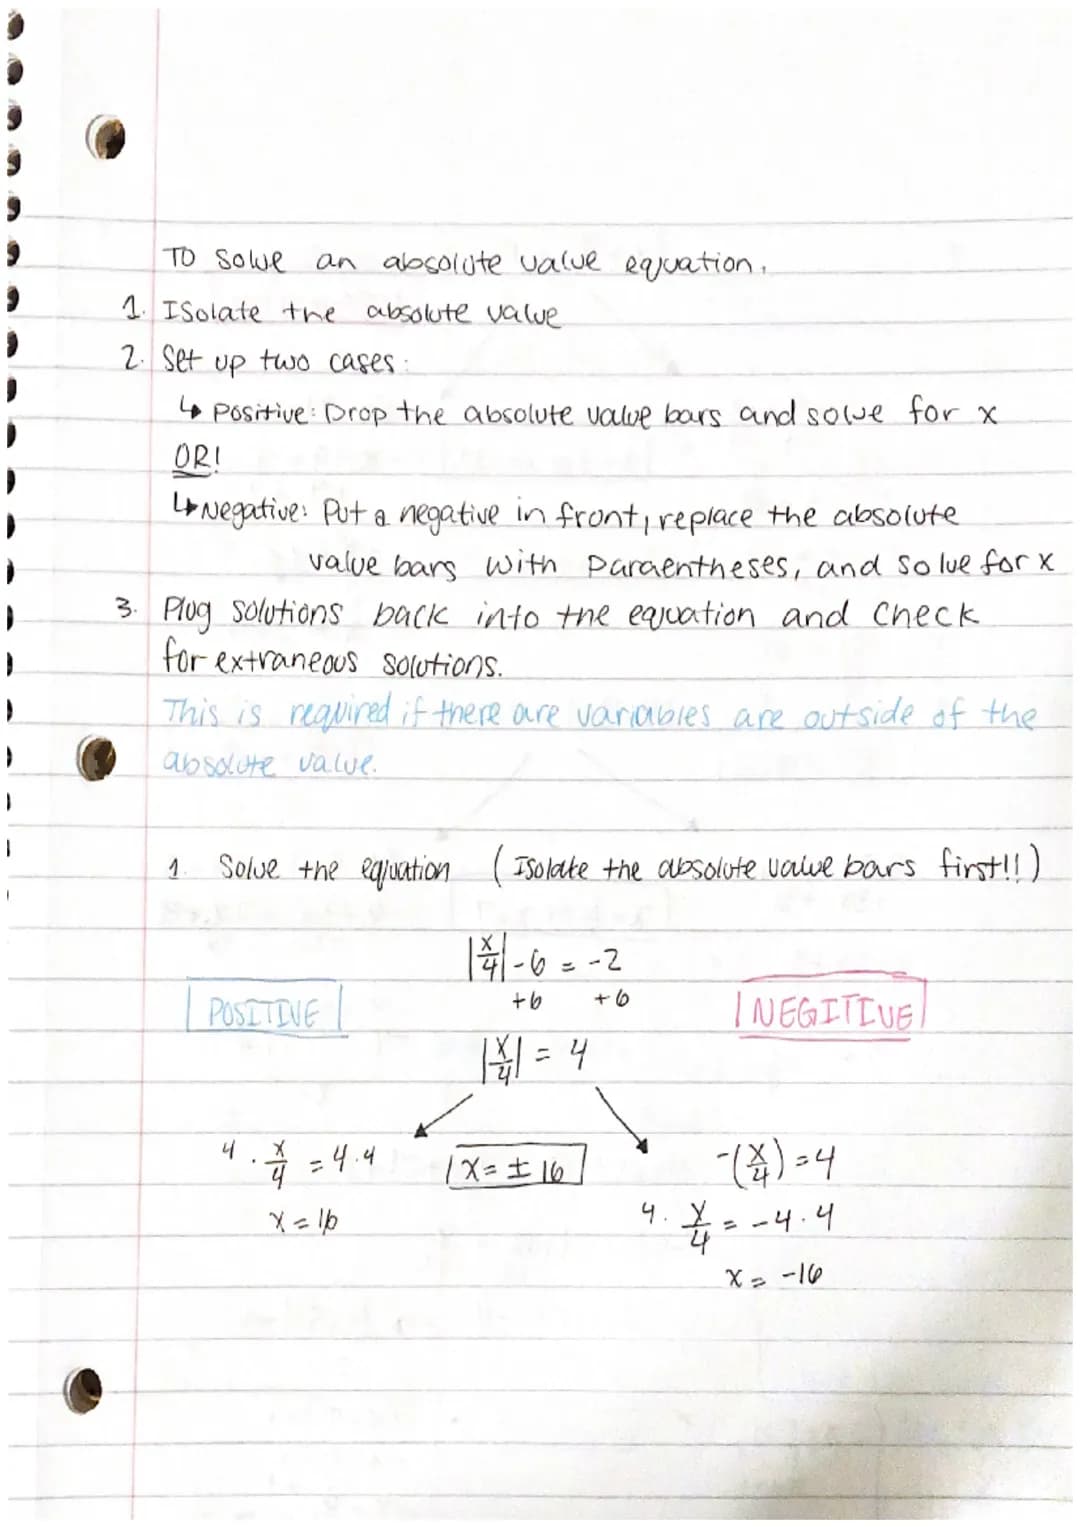 TO Solve an absolute value equation,
1. ISolate the absolute value
2. Set up two cases:
↳ Positive: Drop the absolute value bars and solve for x
OR!
↳ Negative: Put a negative in front, replace the absolute
value bars with Paraentheses, and solve for x
3. Plug solutions back into the equation and Check
for extraneous solutions.
This is required if there are variables are outside of the
absolute value.
1. Solve the equation (Isolate the absolute value bars first!!)
|x/4| - 6 = -2
+6 +6
POSITIVE
NEGITIVE
|x/4| = 4
4 · x/4 = 4.4
x = 16
x = ± 16
-(x/4) = 4
4 · x/4 = -4.4
x = -16